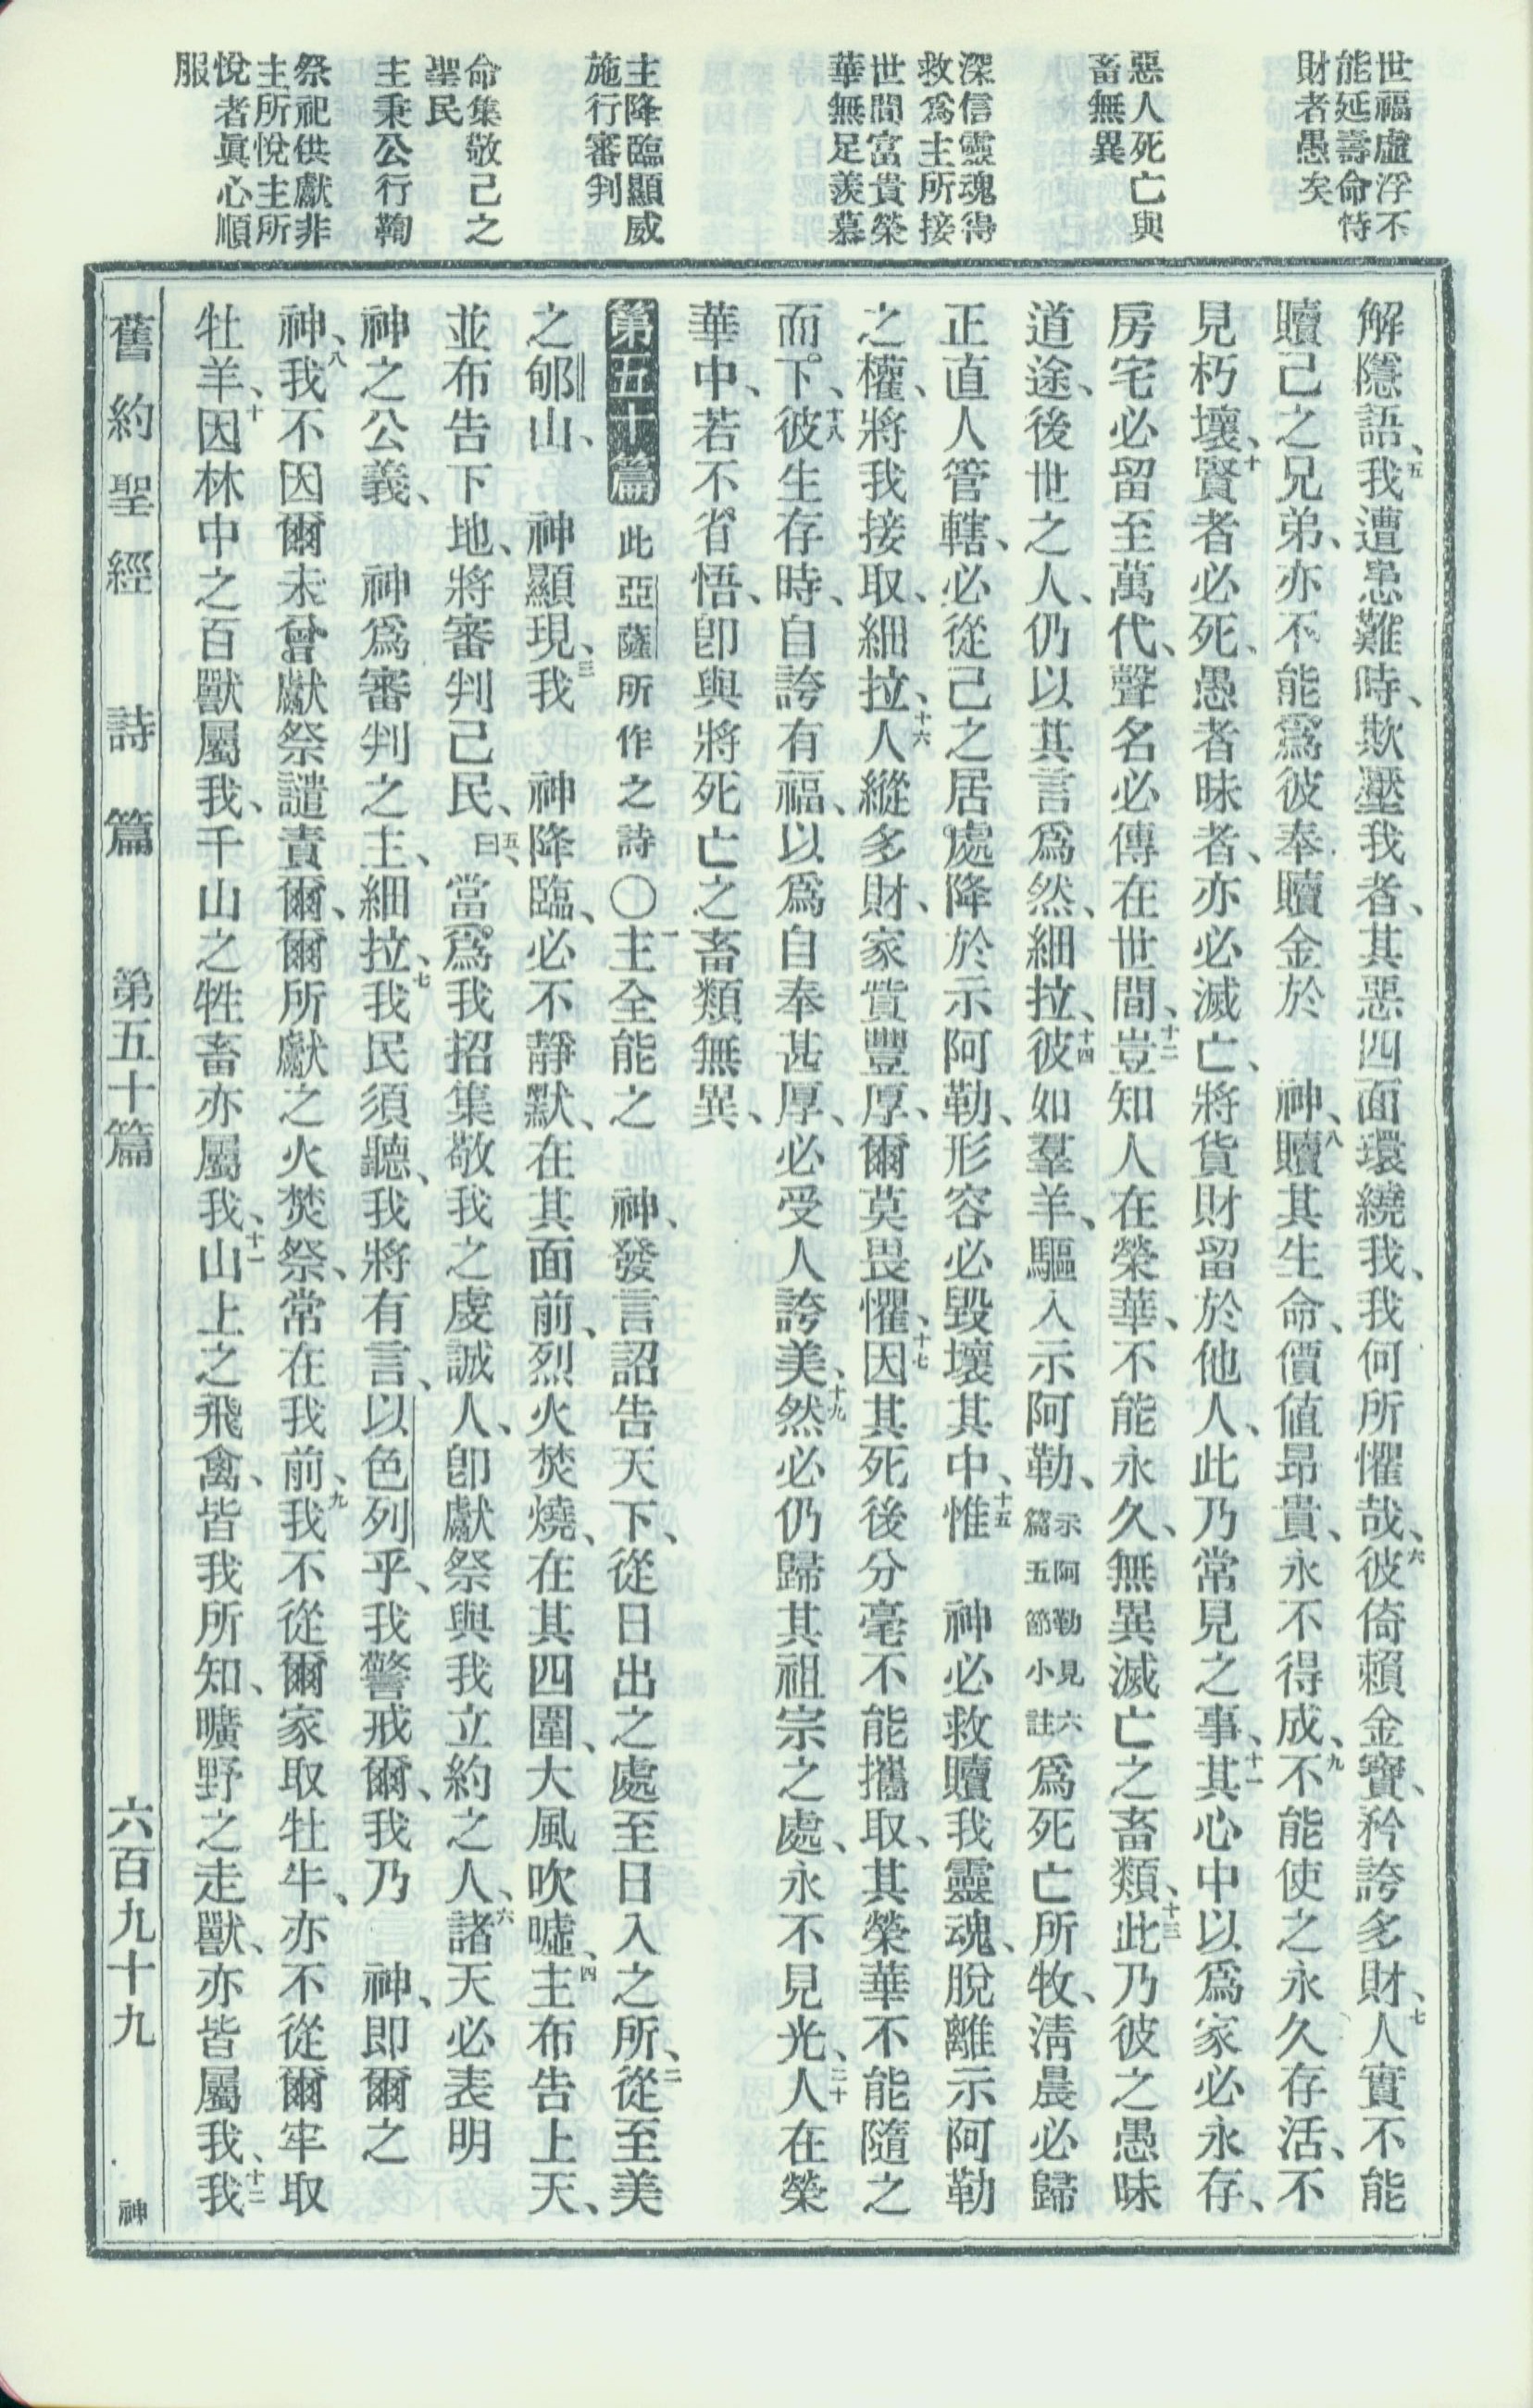 世福虛浮不
能延壽命恃
財者愚矣
惡人死亡與
畜無異
深信靈魂得
救爲主所接
世間富貴榮
華無足羨慕
主降臨顯威
施行審判
命集敬己之
聖民
主秉公行鞫
祭祀供獻非
主所悅主所
悅者眞心順
服
解隱語、五我遭患難時、欺壓我者、其惡四面環繞我、我何所懼哉、六彼倚賴金寶、矜誇多財、七人實不能
贖己之兄弟、亦不能爲彼奉贖金於　神、八贖其生命、價值昂貴、永不得成、九不能使之永久存活、不
見朽壞、十賢者必死、愚者昧者、亦必滅亡、將貨財留於他人、此乃常見之事、十一其心中以爲家必永存、
房宅必留至萬代、聲名必傳在世間、十二豈知人在榮華、不能永久、無異滅亡之畜類、十三此乃彼之愚昧
道途、後世之人、仍以其言爲然、細拉、十四彼如羣羊、驅入示阿勒、示阿勒見六篇五節小註爲死亡所牧、淸晨必歸
正直人管轄、必從己之居處降於示阿勒、形容必毀壞其中、十五惟　神必救贖我靈魂、脫離示阿勒
之權、將我接取、細拉、十六人縱多財、家貲豐厚、爾莫畏懼、十七因其死後分毫不能攜取、其榮華不能隨之
而下、十八彼生存時、自誇有福、以爲自奉甚厚、必受人誇美、十九然必仍歸其祖宗之處、永不見光、二十人在榮
華中、若不省悟、卽與將死亡之畜類無異、
第五十篇　此亞薩所作之詩〇一主全能之　神、發言詔告天下、從日出之處至日入之所、二從至美
之郇山、　神顯現、三我　神降臨、必不靜默、在其面前、烈火焚燒、在其四圍、大風吹噓、四主布告上天、
並布告下地、將審判己民、五曰、當爲我招集敬我之虔誠人、卽獻祭與我立約之人、六諸天必表明
神之公義、　神爲審判之主、細拉、七我民須聽、我將有言、以色列乎、我警戒爾、我乃　神、即爾之
神、八我不因爾未曾獻祭譴責爾、爾所獻之火焚祭、常在我前、九我不從爾家取牡牛、亦不從爾牢取
牡羊、十因林中之百獸屬我、千山之牲畜亦屬我、十一山上之飛禽、皆我所知、曠野之走獸、亦皆屬我、十二我
舊約聖經　詩篇　第五十篇　六百九十九　神